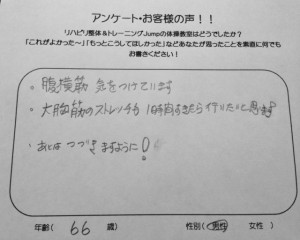 アンケート・お客様の声！！
リハビリ整体＆トレーニングJumpの体操教室はどうでしたか？
「これがよかった～」「もっとこうしてほしかった」などあなたが思ったことを素直に何でも
お書きください！
・腹横筋 気をつけています
・大胸筋のストレッチも 1時間すぎたら行いたいと思います
・あとは つづきますように！。
年齢（ 66 歳） 性別（ 男性 女性 ）